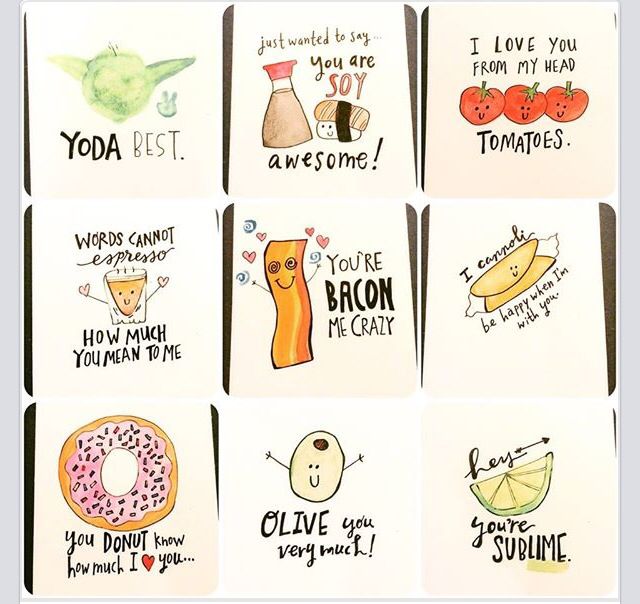 YODA BEST.
just wanted to say...
you are
SOY
awesome!
I LOVE YOU
FROM MY HEAD
TOMATOES.
WORDS CANNOT
espresso
HOW MUCH
YOU MEAN TO ME
YOU'RE
BACON
ME CRAZY
I cannoli
be happy when I'm
with you.
you DONUT know
how much I ♥ you...
OLIVE you
very much!
hey
you're
SUBLIME.